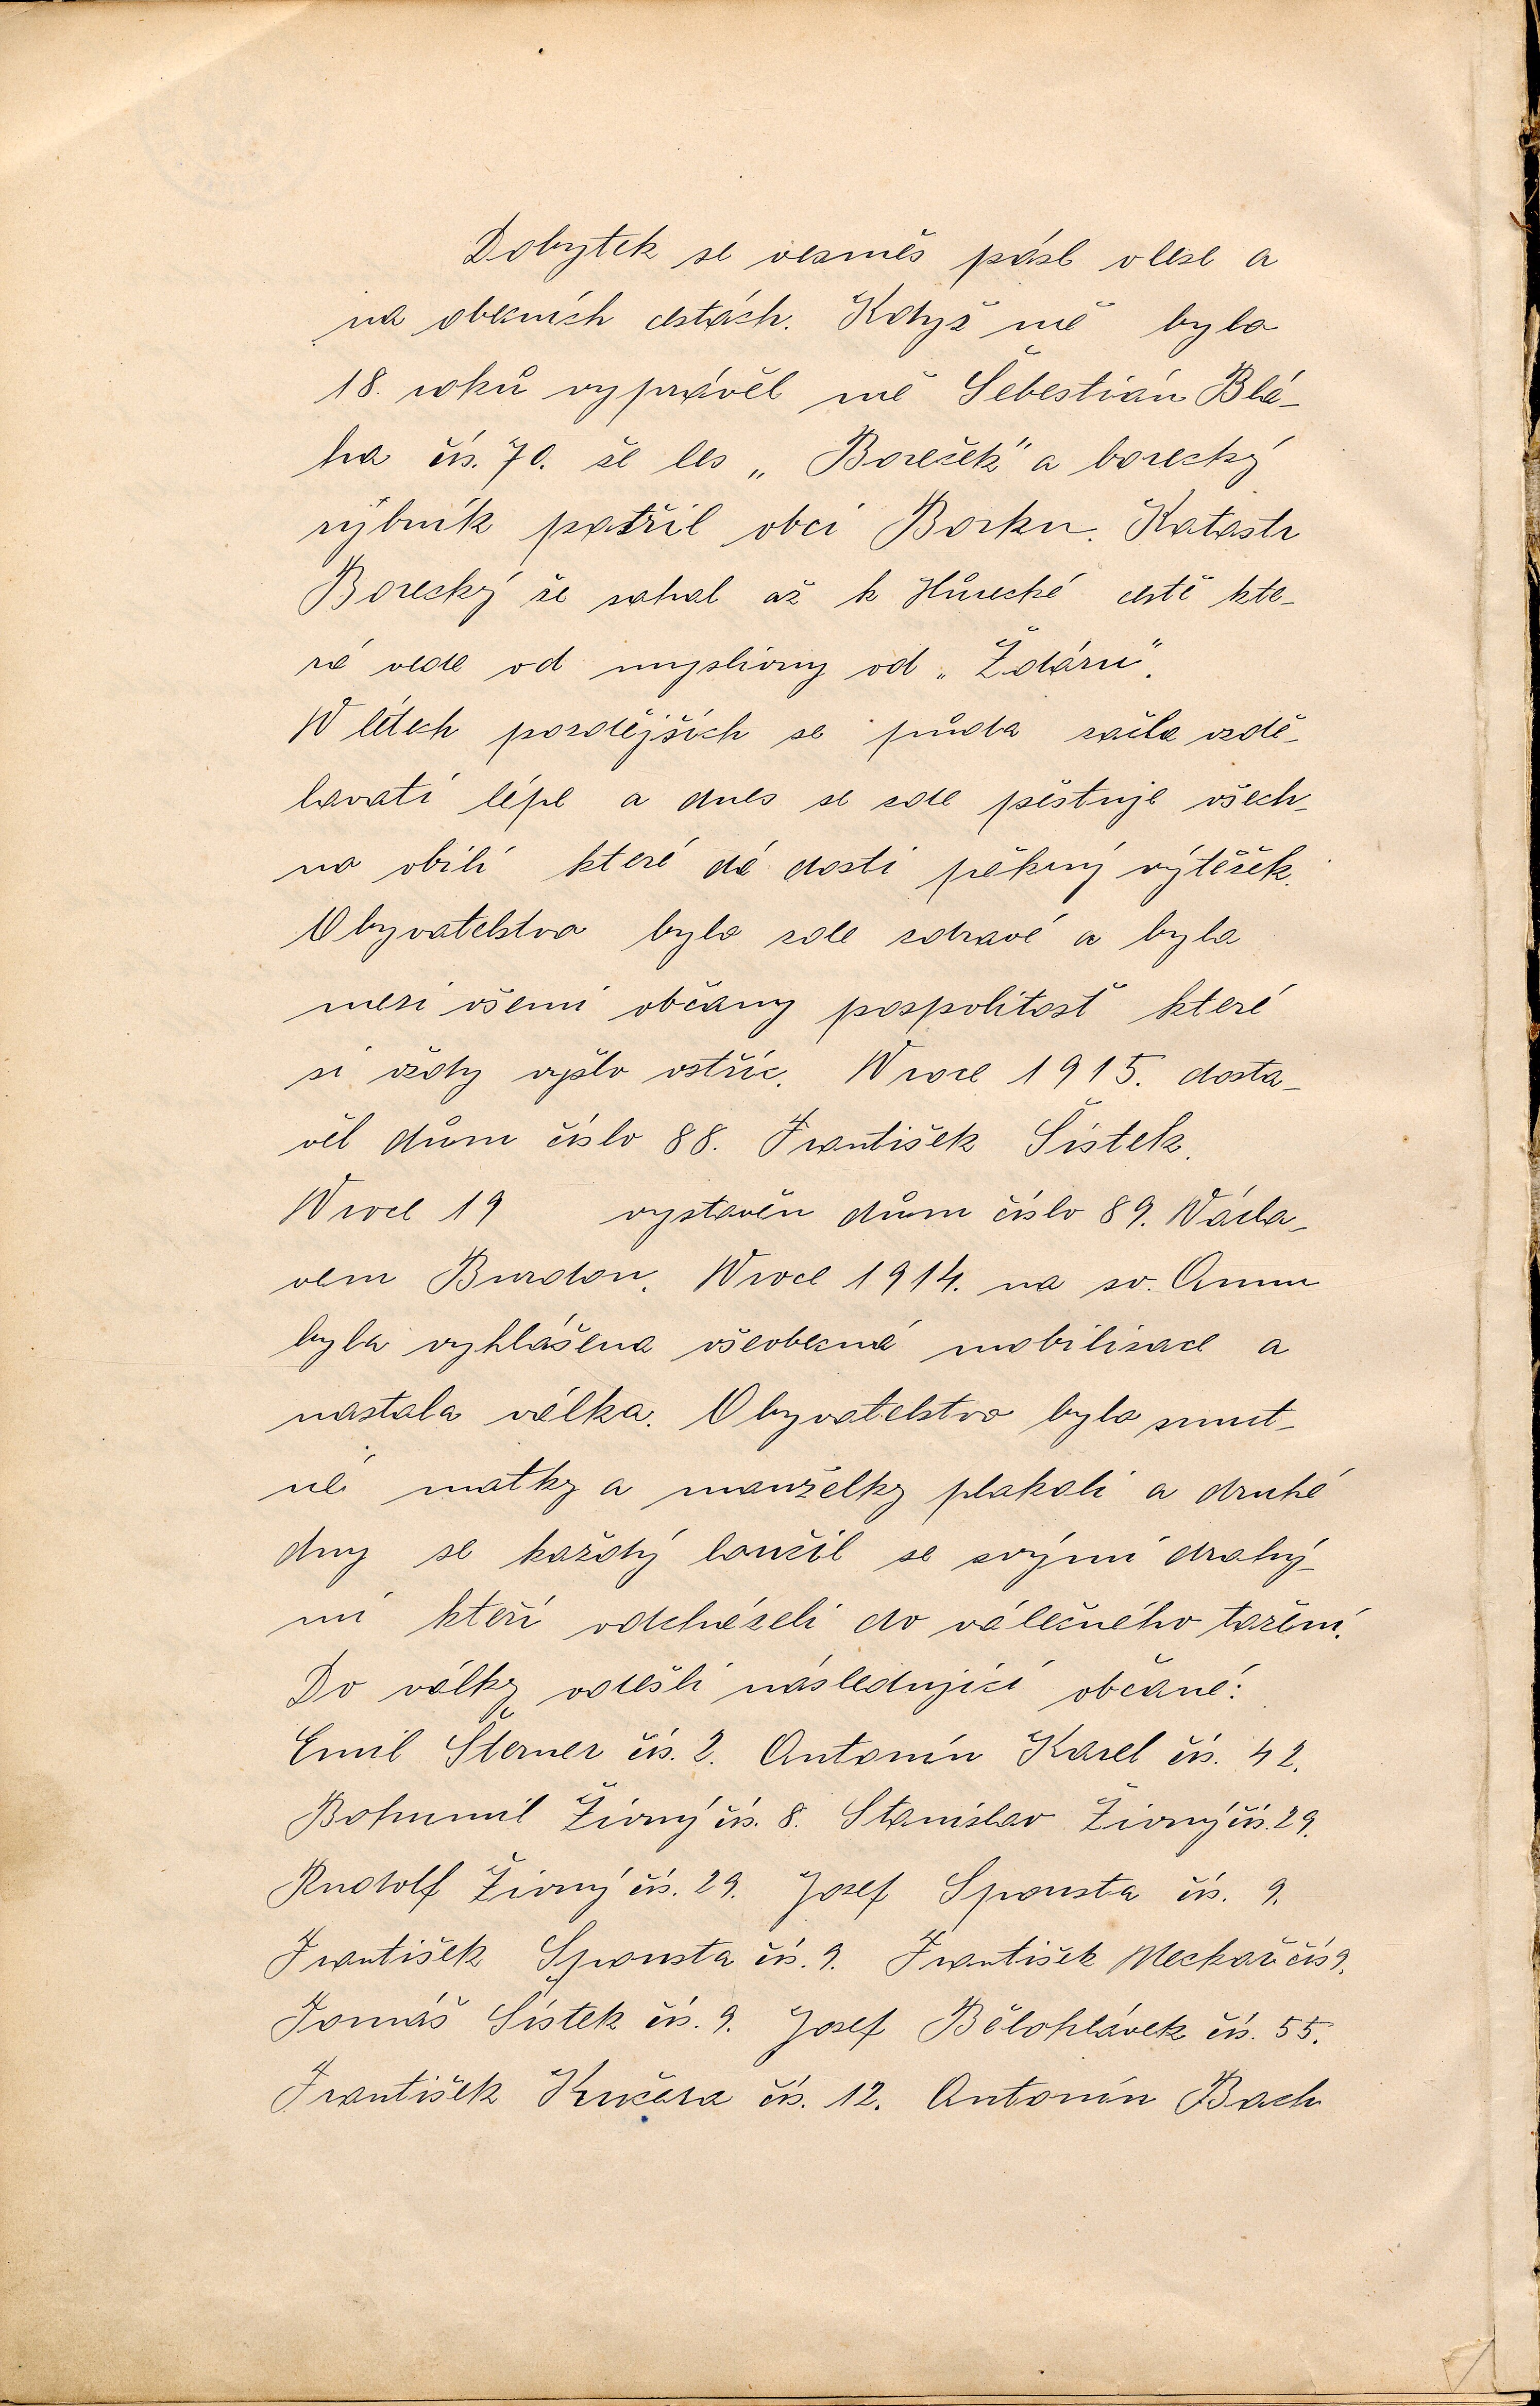 Dobytek se vesměs pásl vlese a
na obecních cestách. Když mě bylo
18. roků vyprávěl mě Šebestián Blá-
ha čís. 70. že les „Boreček" a borecký
rybník patřil obci Borku. Katastr
Borecký že sahal až k Hůrecké cestě kte-
rá vede od myslivny od „Ždáru".
W létech pozdějších se půda začla vzdě-
lavati lépe a dnes se zde pěstuje všech-
no obilí které dá dosti pěkný výtěžek.
Obyvatelstvo bylo zde zdravé a byla
mezi všemi občany pospolitosť které
si vždy vyšlo vstříc. W roce 1915. dosta-
věl dům číslo 88. František Šístek.
W roce 19 vystavěn dům číslo 89. Václa-
vem Burdou. W roce 1914. na sv. Annu
byla vyhlášena všeobecná mobilisace a
nastala válka. Obyvatelstvo bylo smut-
né matky a manželky plakali a druhé
dny se každý loučil se svými drahý-
mi kteří odcházeli do válečného tažení.
Do války odešli následující občané:
Emil Šterner čís. 2. Antonín Karel čís. 42.
Bohumil Živný čís. 8. Stanislav Živný čís. 29.
Rudolf Živný čís. 29. Josef Spousta čís. 9.
František Spousta čís. 9. František Meckař čís 9.
Tomáš Šístek čís. 9. Josef Bělohlávek čís. 55.
František Kučera čís. 12. Antonín Bach